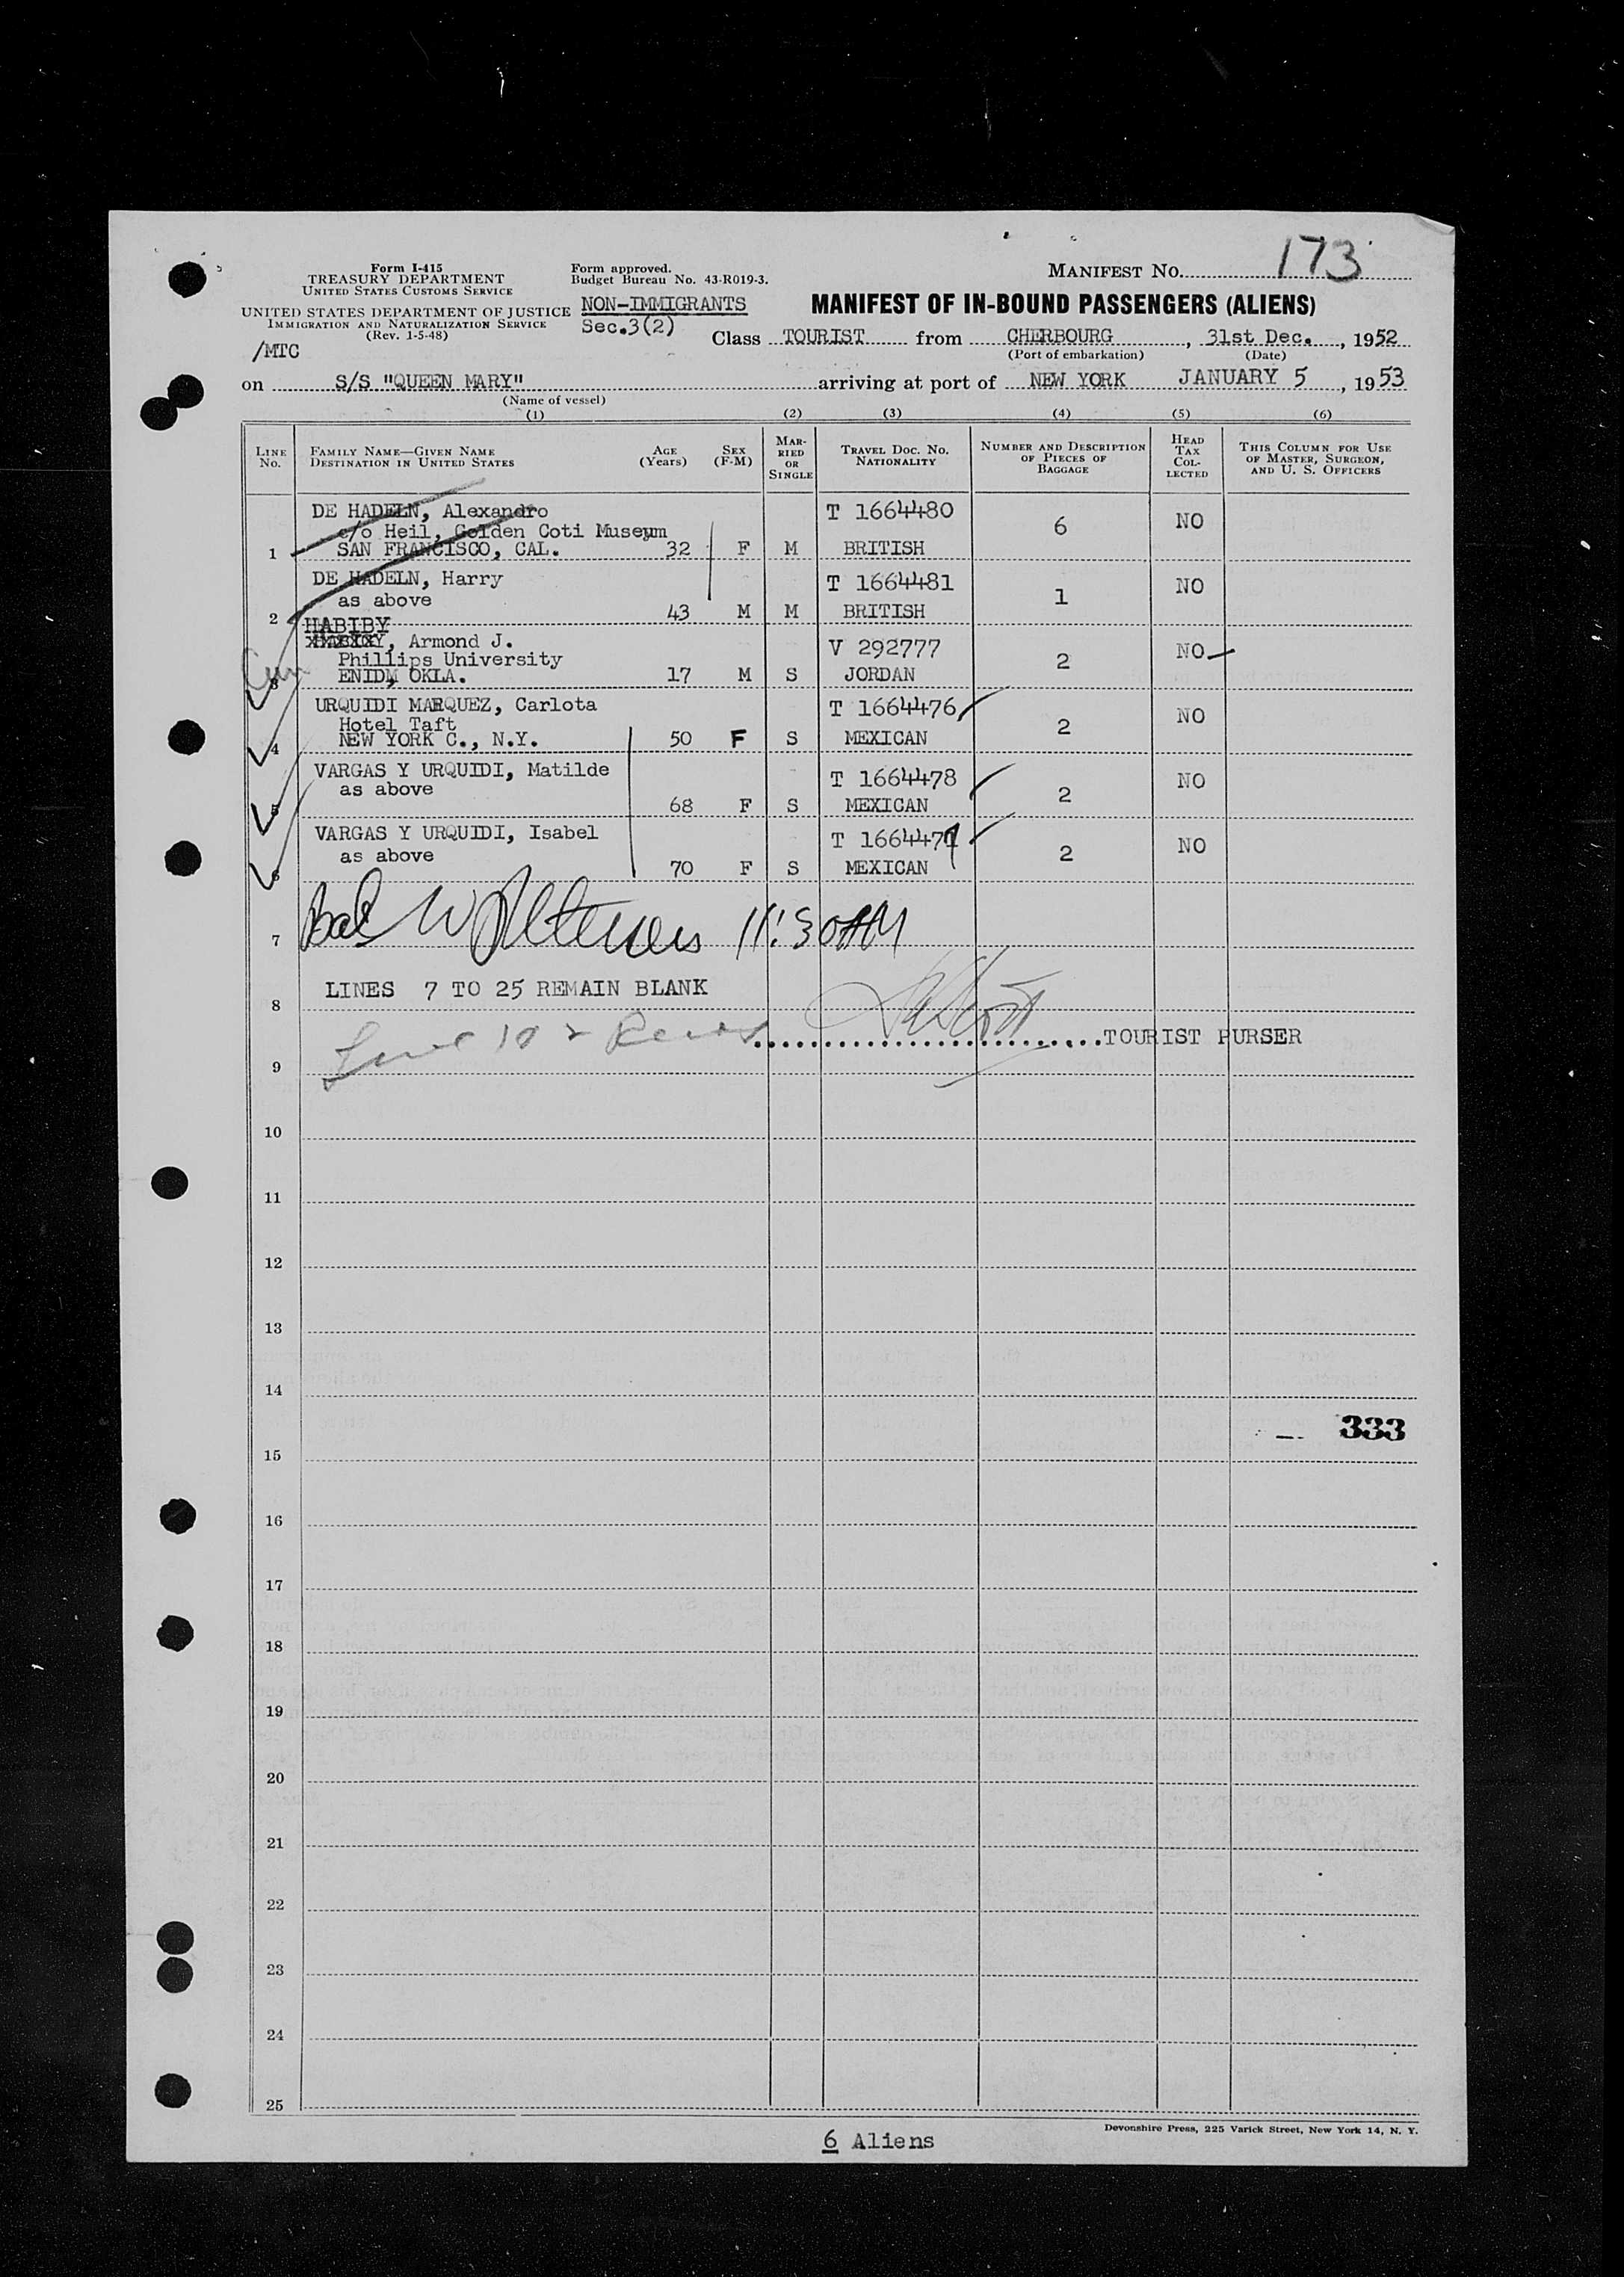 Form I-415
TREASURY DEPARTMENT
UNITED STATES CUSTOMS SERVICE
UNITED STATES DEPARTMENT OF JUSTICE
IMMIGRATION AND NATURALIZATION SERVICE
(Rev. 1-5-48)
/MTC
Form approved.
Budget Bureau No. 43-R019-3.
NON-IMMIGRANTS
Sec.3(2)
MANIFEST NO. 173
MANIFEST OF IN-BOUND PASSENGERS (ALIENS)
Class TOURIST from CHERBOURG, 31st Dec., 1952
(Port of embarkation) (Date)
on S/S "QUEEN MARY" arriving at port of NEW YORK JANUARY 5, 1953
(Name of vessel)
(1) (2) (3) (4) (5) (6)
LINE NO. FAMILY NAME—GIVEN NAME DESTINATION IN UNITED STATES AGE (YEARS) SEX (F-M) MARRIED OR SINGLE TRAVEL DOC. NO. NATIONALITY NUMBER AND DESCRIPTION OF PIECES OF BAGGAGE HEAD TAX COLLECTED THIS COLUMN FOR USE OF MASTER, SURGEON, AND U. S. OFFICERS
DE HADELN, Alexandro T 1664480 6 NO
c/o Heil, Golden Coti Museum
1 SAN FRANCISCO, CAL. 32 F M BRITISH
DE HADELN, Harry T 1664481 1 NO
as above
2 43 M M BRITISH
HABIBY
, Armond J. V 292777 2 NO
Phillips University
3 ENID, OKLA. 17 M S JORDAN
URQUIDI MARQUEZ, Carlota T 1664476 2 NO
Hotel Taft
4 NEW YORK C., N.Y. 50 F S MEXICAN
VARGAS Y URQUIDI, Matilde T 1664478 2 NO
as above
5 68 F S MEXICAN
VARGAS Y URQUIDI, Isabel T 166447 2 NO
as above
6 70 F S MEXICAN
7 11:30AM
8 LINES 7 TO 25 REMAIN BLANK
TOURIST PURSER
9
10
11
12
13
14
333
15
16
17
18
19
20
21
22
23
24
25
Devonshire Press, 225 Varick Street, New York 14, N. Y.
6 Aliens